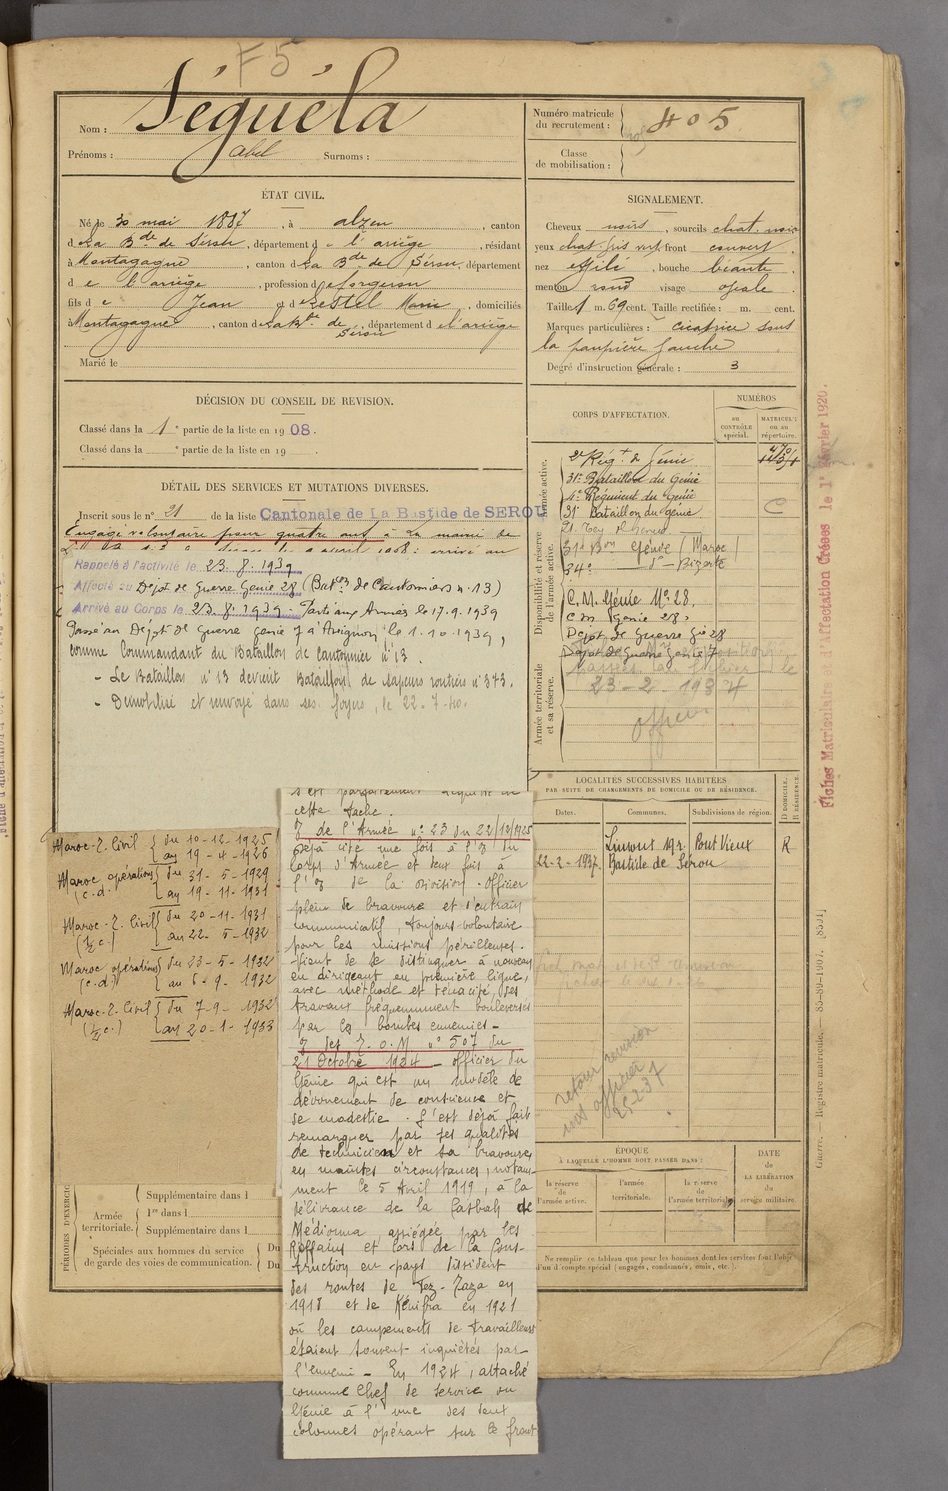 F5
Nom : Séguéla
Prénoms : abel Surnoms :
Numéro matricule
du recrutement : 405
Classe
de mobilisation :
ÉTAT CIVIL.
Né le 30 mai 1887, à alzen, canton
d La Bde de Sérou, département d e l'ariège, résidant
à Montagagne, canton d La Bde de Sérou, département
d e l'ariège, profession d e forgeron
fils d e Jean et d e Restel Marie, domiciliés
à Montagagne, canton d La Bde de Sérou, département d e l'ariège
Marié le
SIGNALEMENT.
Cheveux noirs, sourcils chat. noirs
yeux chat. gris vert front couvert
nez effilé, bouche béante
menton rond visage ovale
Taille 1 m. 69 cent. Taille rectifiée : m. cent.
Marques particulières : cicatrice sous
la paupière gauche
Degré d'instruction générale : 3
DÉCISION DU CONSEIL DE REVISION.
Classé dans la 1e partie de la liste en 1908.
Classé dans la e partie de la liste en 19
DÉTAIL DES SERVICES ET MUTATIONS DIVERSES.
Inscrit sous le n° 21 de la liste Cantonale de La Bastide de SEROU
Engagé volontaire pour quatre ans à la mairie de
Rappelé à l'activité le 23.8.1939
Affecté au Dépôt de Guerre Génie 28 (Baton de Cantonniers n° 13)
Arrivé au Corps le 23.8.1939 - Parti aux Armées le 17.9.1939
Passé au Dépôt de Guerre Génie 7 à Avignon le 1.10.1939,
comme Commandant du Bataillon de Cantonnier n° 13.
- Le Bataillon n° 13 devient Bataillon de sapeurs routiers n° 373.
- Démobilisé et envoyé dans ses foyers, le 22-7-40.
CORPS D'AFFECTATION.
NUMÉROS
AU
CONTRÔLE
spécial.
MATRICULE
ou au
répertoire.
Armée active.
2e Régt de Génie
31e Bataillon du Génie
4e Régiment du Génie
31e Bataillon du génie
C
Disponibilité et réserve
de l'armée active.
31e Bon Génie (Maroc)
34e - d° - Bizerte
C.M. Génie N° 28.
C.M. Génie 28
Dépôt de Guerre Gie 28
Dépôt de Guerre Génie 7
Armée territoriale
et sa réserve.
23-2-1934
officier
Fiches Matriculaire et d'Affectation Créées le 1er Février 1920.
LOCALITÉS SUCCESSIVES HABITÉES
PAR SUITE DE CHANGEMENTS DE DOMICILE OU DE RÉSIDENCE.
Dates.
Communes.
Subdivisions de région.
D DOMICILE.
R RÉSIDENCE.
Pont Vieux R
22-2-1937. Bastide de Serou
retour revision
25-2-37
Maroc-Z. Civil { du 10-12-1925
au 19-4-1926
Maroc opérations { du 31-5-1929
(c.d.) au 19-11-1931
Maroc-Z. Civil { du 20-11-1931
(½ c.) au 22-5-1932
Maroc opérations { du 23-5-1932
(c.d.) au 6-9-1932
Maroc-Z. Civil { du 7-9-1932
(½ c.) au 20-1-1933
s'est parfaitement acquitté de
cette tache.
O de l'Armée n° 23 du 22/12/1925
Déjà cité une fois à l'O du
Corps d'Armée et deux fois à
l'O de la Division. Officier
plein de bravoure et d'entrain
communicatif, toujours volontaire
pour les missions périlleuses.
Vient de se distinguer à nouveau
en dirigeant en première ligne,
avec méthode et ténacité, des
travaux fréquemment bouleversés
par les bombes ennemies -
O des T.O.M. n° 507 du
21 Octobre 1924 - officier du
Génie qui est un modèle de
dévouement de conscience et
de modestie. S'est déjà fait
remarquer par ses qualités
de technicien et sa bravoure,
en maintes circonstances, notam-
ment le 5 Avril 1919, à la
délivrance de la Casbah de
Médiouna assiégée par les
Riffains et lors de la Cons-
truction en pays dissident
des routes de Fez-Taza en
1918 et de Kénifra en 1921
où les campements de travailleurs
étaient souvent inquiétés par
l'ennemi - En 1924, attaché
comme Chef de Service du
Génie à l'une des deux
colonnes opérant sur le front
PÉRIODES D'EXERCIC
Armée
territoriale.
Supplémentaire dans l
1re dans l
Supplémentaire dans l
Spéciales aux hommes du service
de garde des voies de communication.
Du
Du
ÉPOQUE
À LAQUELLE L'HOMME DOIT PASSER DANS :
la réserve
de
l'armée active.
l'armée
territoriale.
la réserve
de
l'armée territoriale.
DATE
de
LA LIBÉRATION
du
service militaire.
Ne remplir ce tableau que pour les hommes dont les services font l'objet
d'un d compte spécial (engagés, condamnés, omis, etc.).
Guerre. — Registre matricule. — 85-89-1907. [8591]